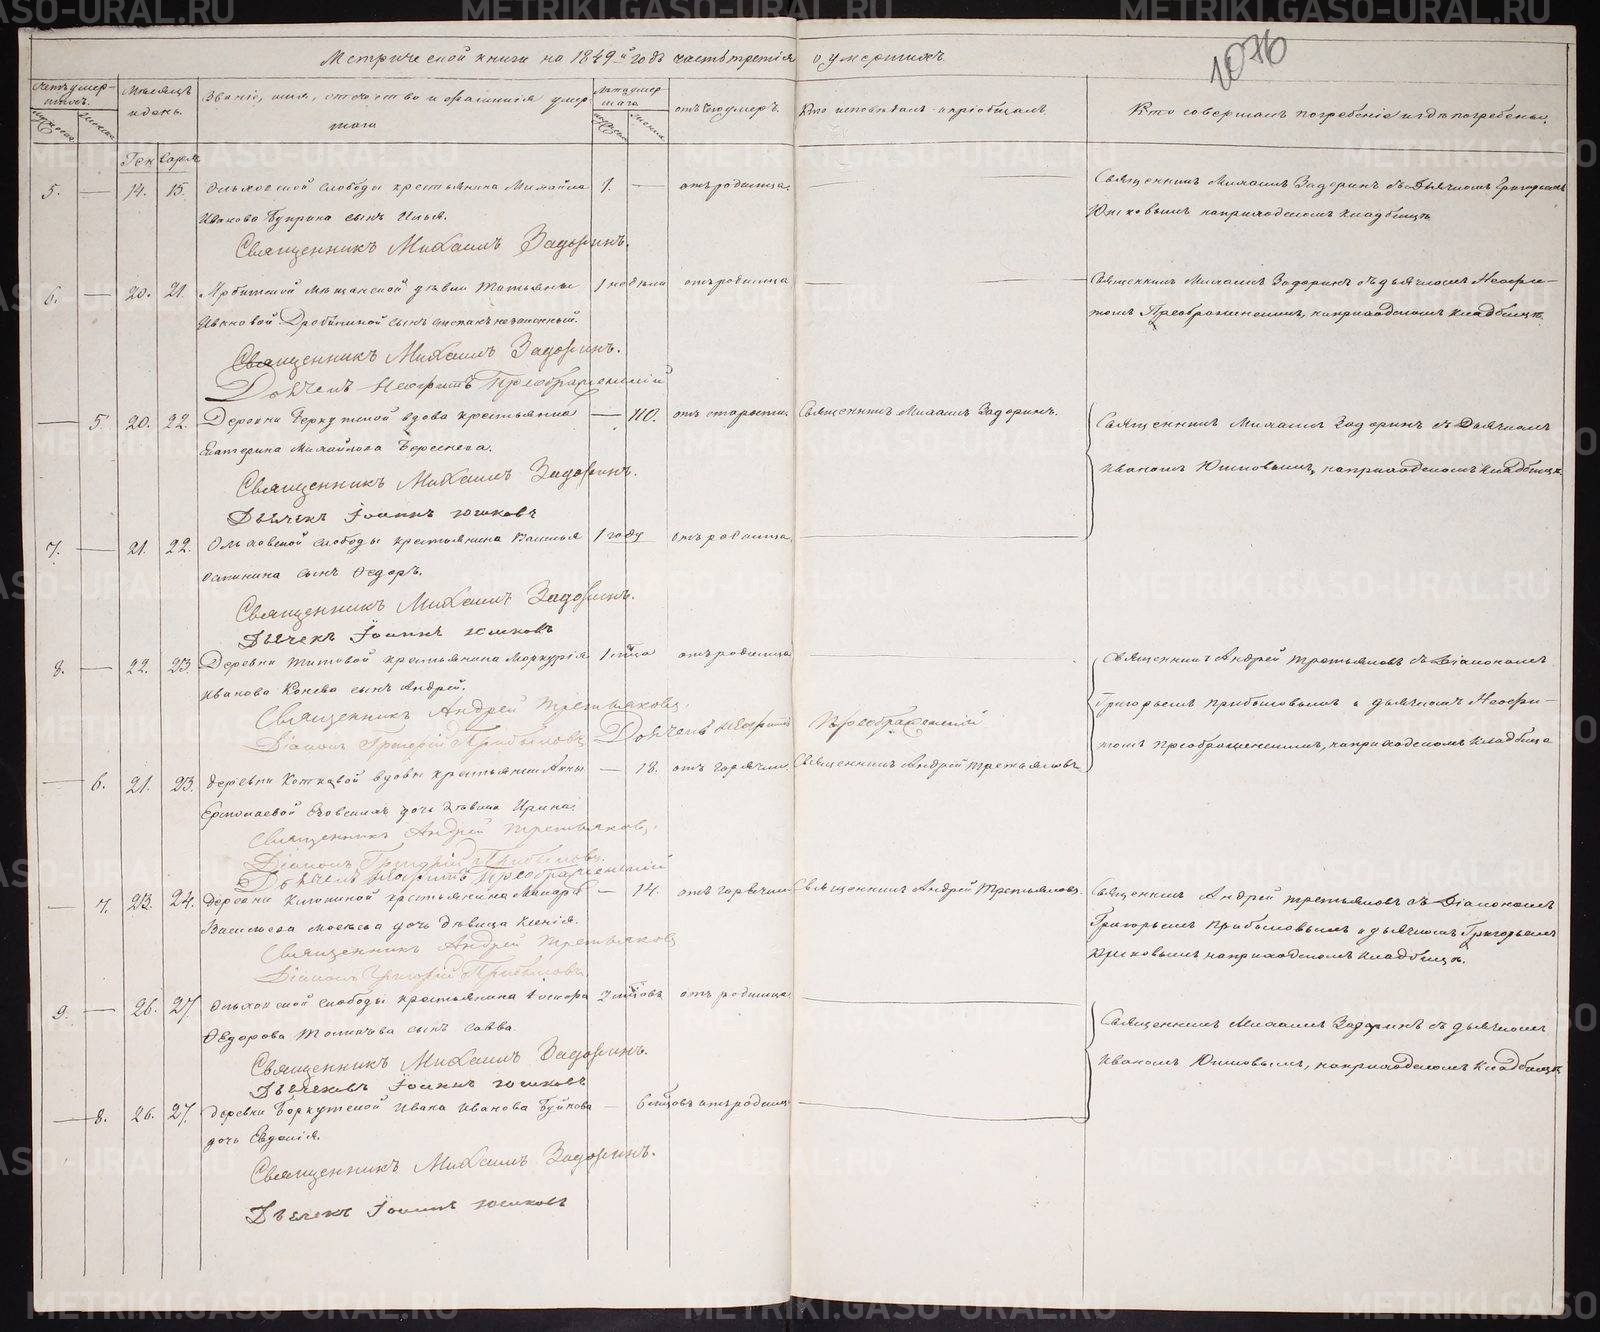 Метрической книги на 1849й годъ часть третія о умершихъ.
1076
Мѣсяцъ и день.
Званіе, имя, отчество и фамилія умершаго
Лѣта умершаго
отъ чего умеръ.
Кто исповѣдалъ и пріобщалъ.
Кто совершалъ погребеніе и гдѣ погребены.
5. — 14. 15. Ольховской слободы крестьянина Михайла 1. — отъ родимца. Священникъ Михаилъ Задоринъ съ дьячкомъ Григорьемъ
Иванова сынъ Илья. Юшковымъ на приходскомъ кладбищѣ
Священникъ Михаилъ Задоринъ.
6. — 20. 21. Ирбитской мѣщанской дѣвки Татьяны 1 недѣля отъ родимца Священникъ Михаилъ Задоринъ съ дьячкомъ Неофи-
Ивановой сынъ Степанъ незаконный. томъ Преображенскимъ, на приходскомъ кладбищѣ.
Священникъ Михаилъ Задоринъ.
Дьячекъ Неофитъ Преображенскій
— 5. 20. 22. Деревни Беркутской вдова крестьянка — 110. отъ старости. Священникъ Михаилъ Задоринъ. Священникъ Михаилъ Задоринъ съ дьячкомъ
Екатерина Михайлова Берсенева. Иваномъ Юшковымъ, на приходскомъ кладбищѣ.
Священникъ Михаилъ Задоринъ.
Дьячекъ Іоаннъ Юшковъ
7. — 21. 22. Ольховской слободы крестьянина Василья 1 году отъ родимца.
сынъ Ѳедоръ.
Священникъ Михаилъ Задоринъ.
Дьячекъ Іоаннъ Юшковъ
8. — 22. 23. Деревни Титовой крестьянина Меркурія 1 мѣсяца отъ родимца Священникъ Андрей Третьяковъ съ Діакономъ
Иванова Конева сынъ Андрей. Григорьемъ Прибыловымъ и дьячкомъ Неофи-
Священникъ Андрей Третьяковъ.
Діаконъ Григорій Прибыловъ Дьячекъ Неофитъ Преображенскій томъ Преображенскимъ, на приходскомъ кладбищѣ
— 6. 21. 23. Деревни вдовы крестьянки Анны — 18. отъ горячки. Священникъ Андрей Третьяковъ
Ермолаевой дочь дѣвица Ирина.
Священникъ Андрей Третьяковъ.
Діаконъ Григорій Прибыловъ.
Дьячекъ Неофитъ Преображенскій
— 7. 23. 24. Деревни крестьянина Макара — 14. отъ горячки Священникъ Андрей Третьяковъ. Священникъ Андрей Третьяковъ съ Діакономъ
Васильева дочь дѣвица Ксенія. Григорьемъ Прибыловымъ и дьячкомъ Григорьемъ
Священникъ Андрей Третьяковъ Юшковымъ на приходскомъ кладбищѣ.
Діаконъ Григорій Прибыловъ.
9. — 26. 27. Ольховской слободы крестьянина 2 мѣсяцовъ отъ родимца.
Ѳедорова сынъ Савва. Священникъ Михаилъ Задоринъ съ дьячкомъ
Священникъ Михаилъ Задоринъ. Иваномъ Юшковымъ, на приходскомъ кладбищѣ
Дьячековъ Іоаннъ Юшковъ
— 8. 26. 27. Деревни Беркутской Ивана Иванова Буйкова — 6 мѣсяцовъ отъ родимц.
дочь Евдокія.
Священникъ Михаилъ Задоринъ.
Дьячекъ Іоаннъ Юшковъ